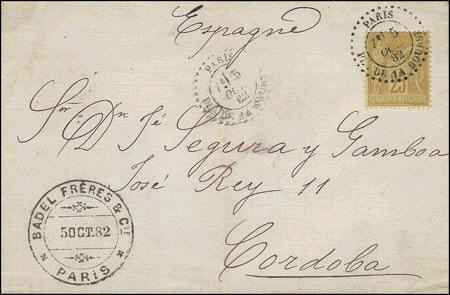 Espagne
PARIS
5
OCT
82
PL. DE LA BOURSE
25
PARIS
5
OCT
82
PL. DE LA BOURSE
Sr. Dn. Jé Segura y Gamboa
José Rey 11
Cordoba
BADEL FRÈRES & CIE
5 OCT. 82
PARIS